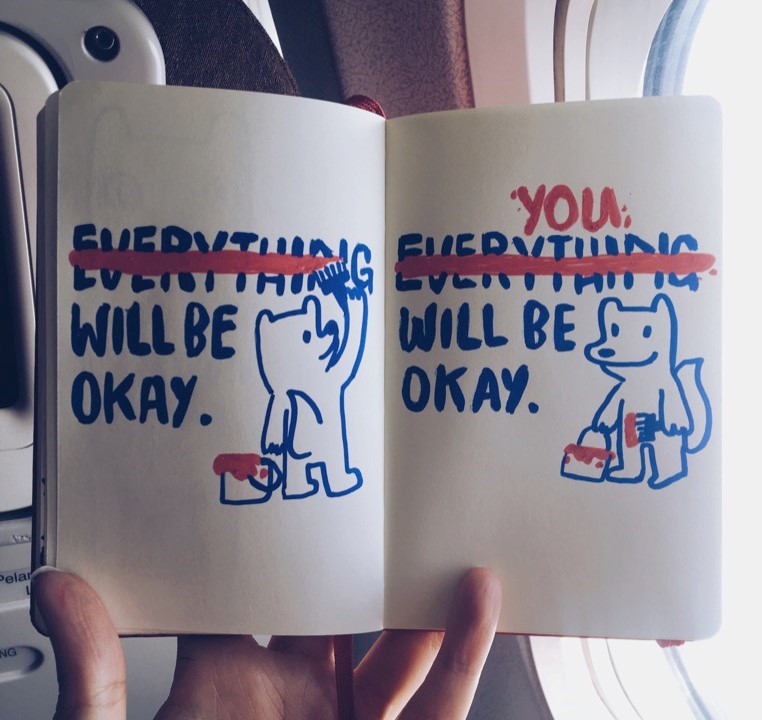 EVERYTHING
WILL BE
OKAY.
YOU
EVERYTHING
WILL BE
OKAY.